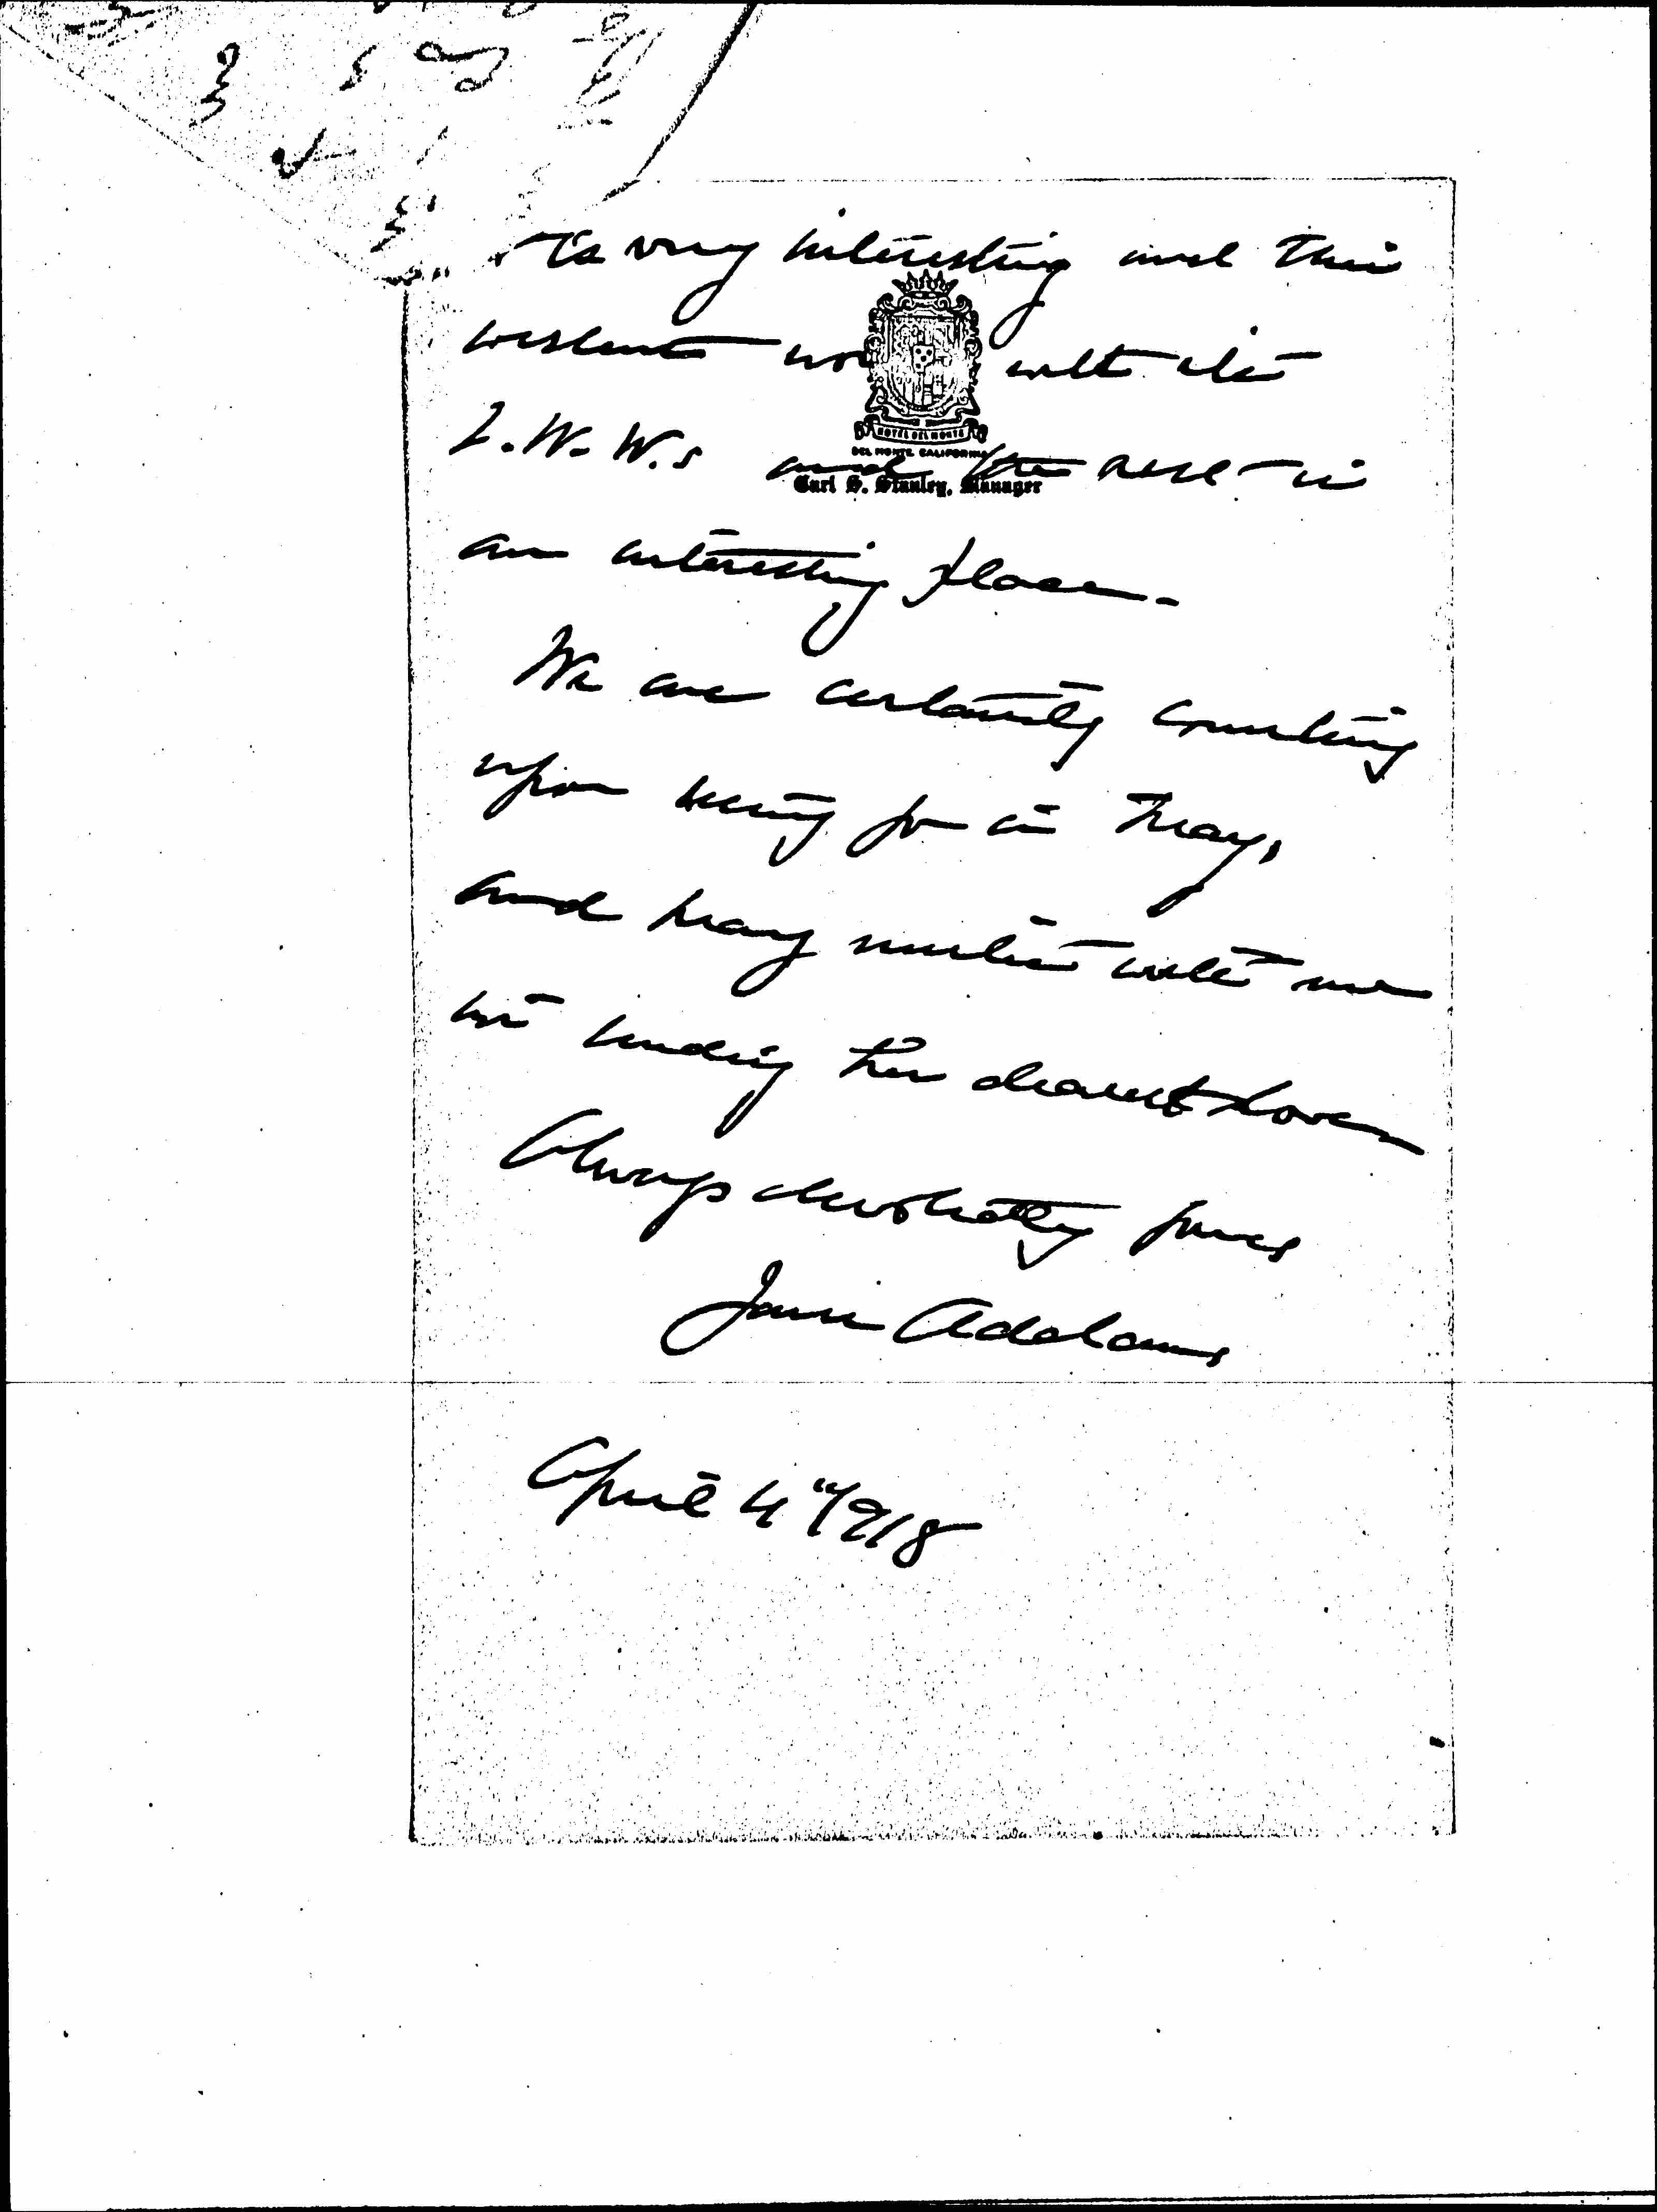 is very interesting and this
western wo with its
I.W.W.s and the rest is
an interesting place.
HOTEL DEL MONTE
DEL MONTE CALIFORNIA
Carl S. Stanley, Manager
We are certainly counting
upon seeing you in May,
and Mary unites with me
in sending her dearest love
Always devotedly yours
Jane Addams
April 4" 1918